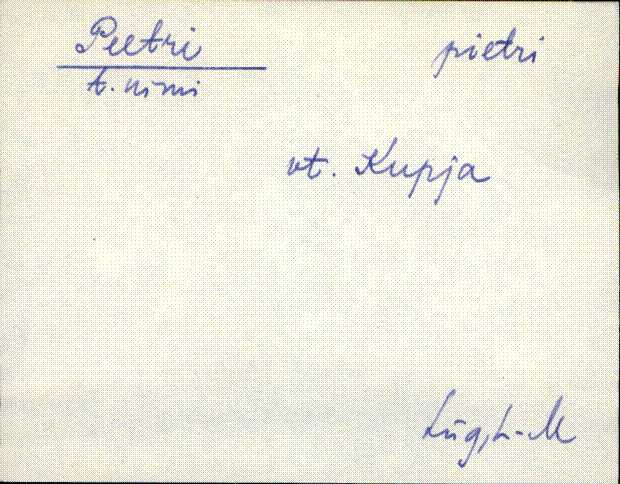 Peetri pietri
t. nimi
vt. Kupja
Lüg, L-M